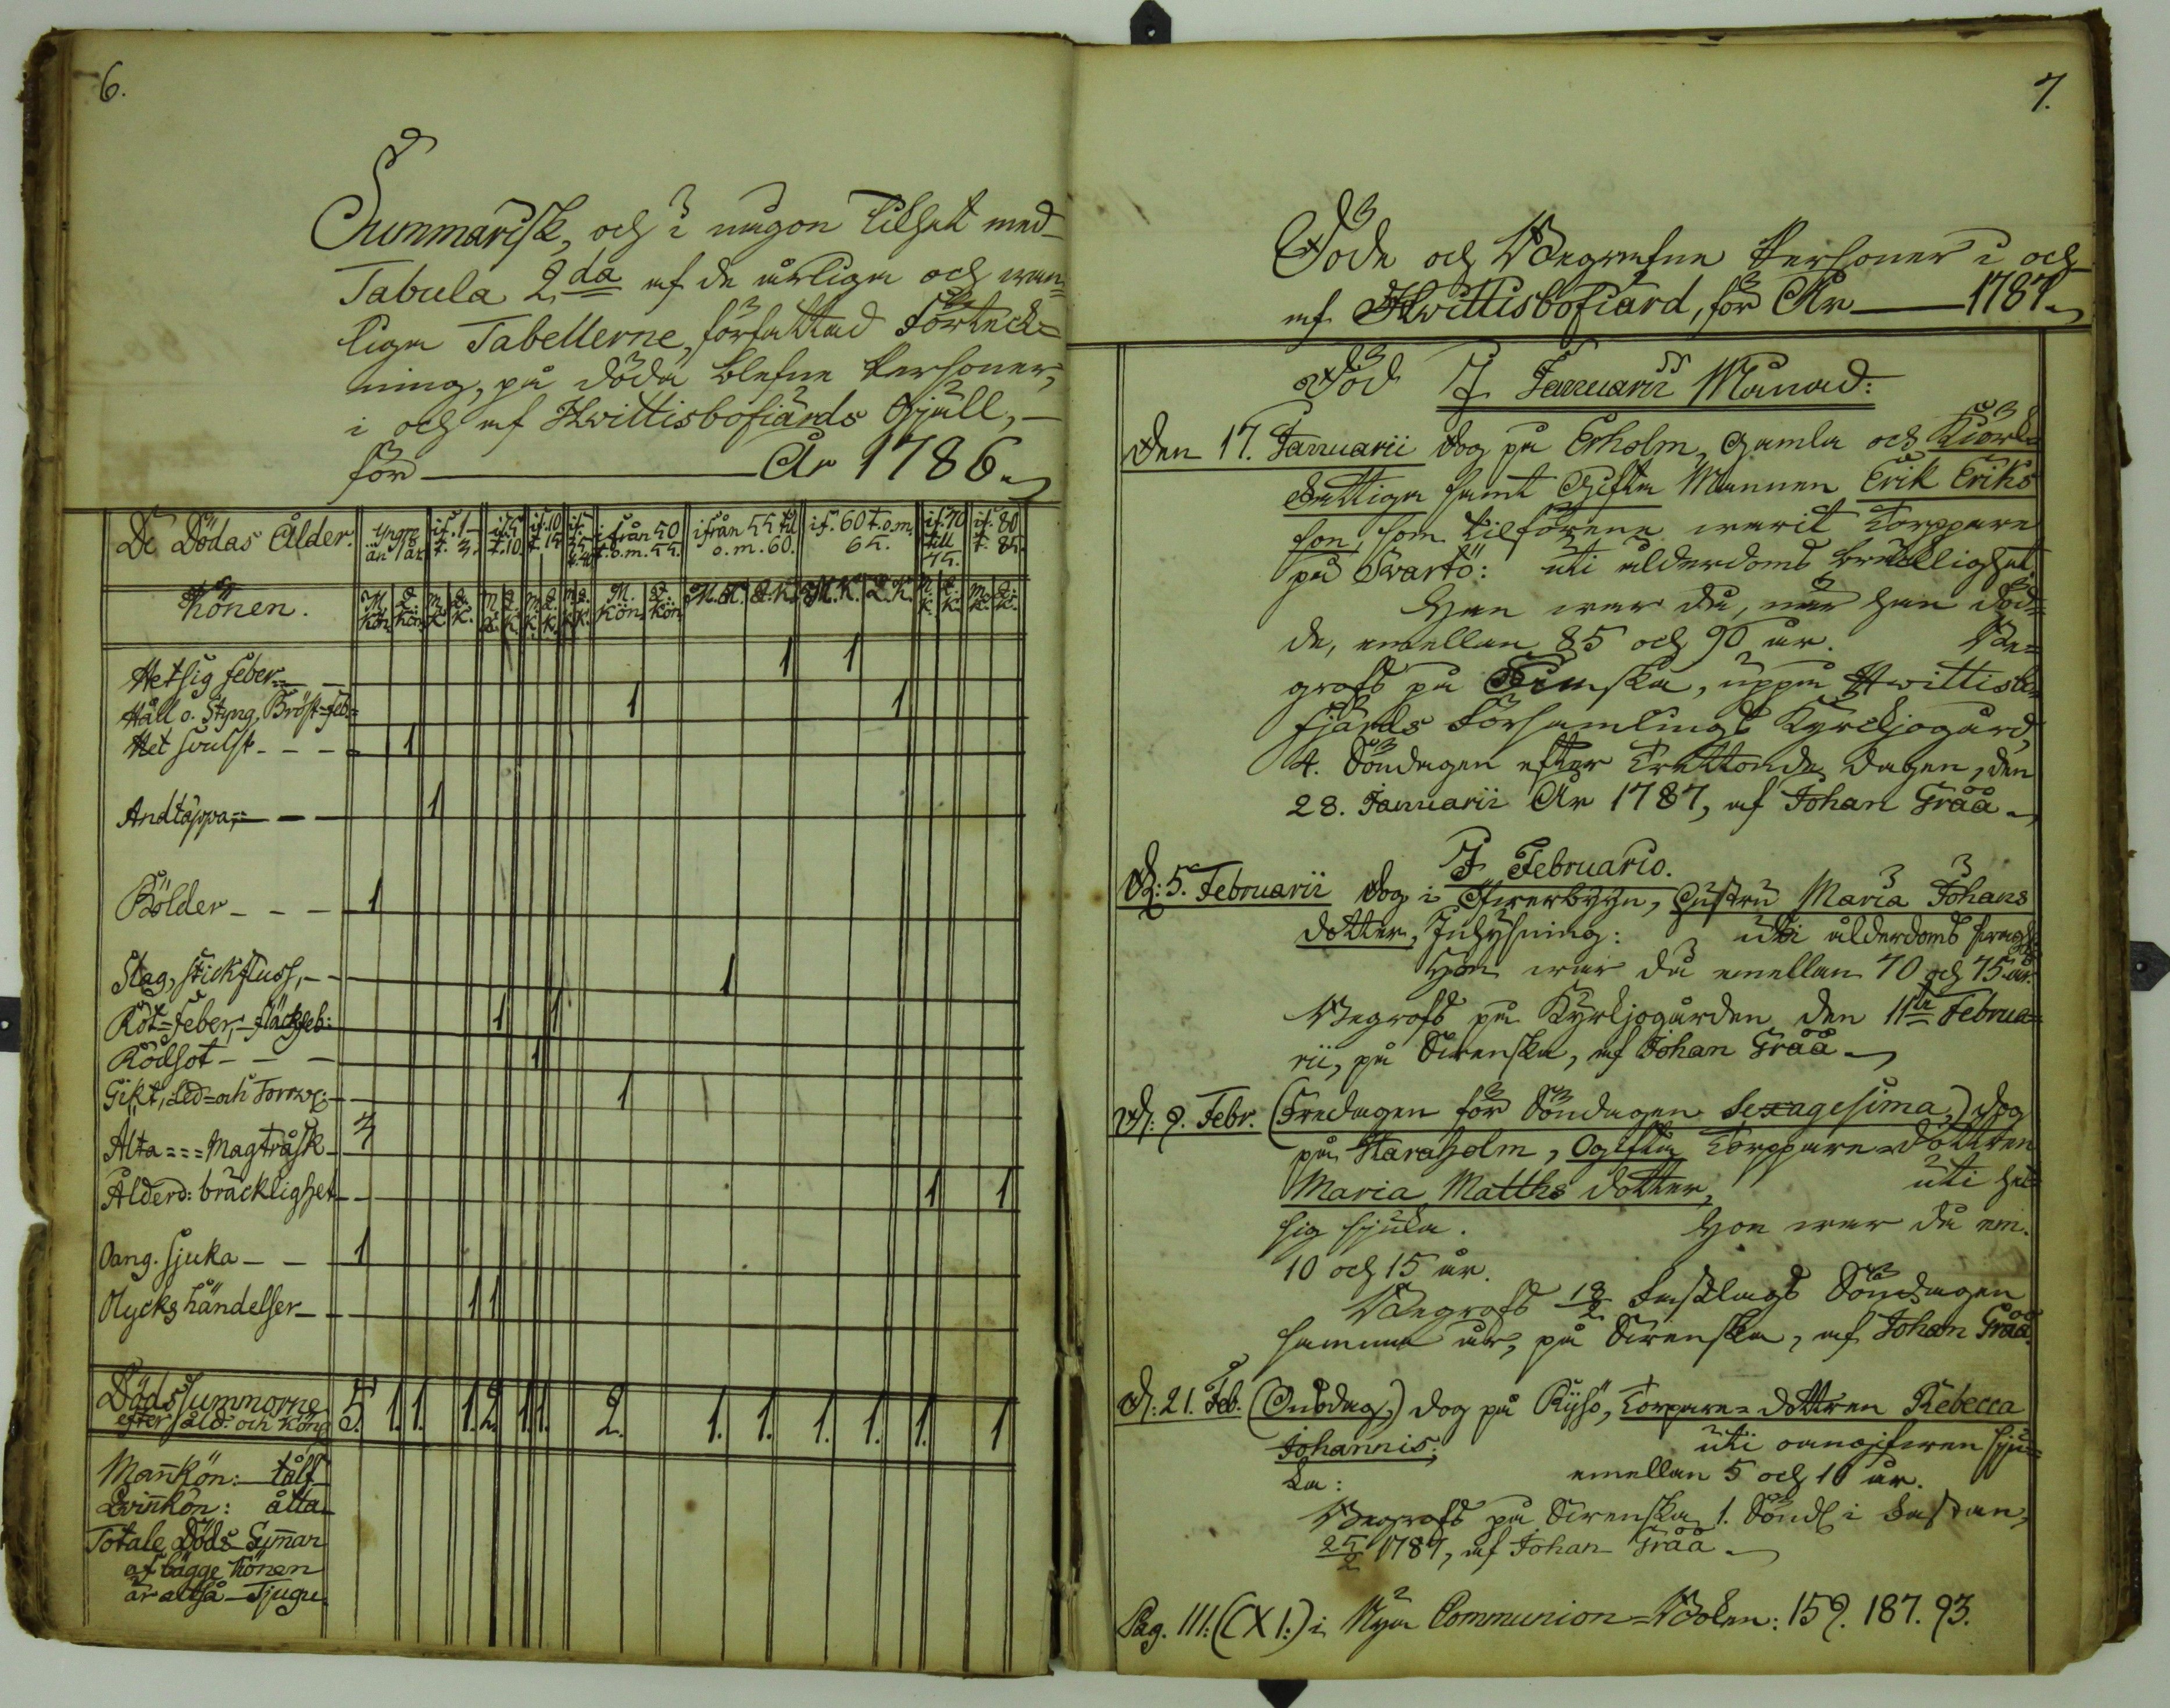 6.
Summarisk, och i någon likhet med
Tabula 2da af de årliga och wan=
liga Tabellerne, författad Förteck=
ning, på döda blefne Personer,
i och af Hwittisbofiärds Gjäll,
för År 1786.
De Dödas Ålder. yngre än 1 år if. 1 t. 3. if. 5 t. 10. if. 10 t. 15 ifrån 50 t. o. m. 55. ifrån 55 til o. m. 60. if. 60 t. o. m. 65. if. 70 till 75. if. 80 t. 85.
Könen. M. kön Q. kön M. K. Q. K. M. K. Q. K. M. K. Q. K. M. K. Q. K. M. Kön Q. Kön M. K. Q. K. M. K. Q. K. M. K. Q. K. M. K. Q. K.
Hetsig feber 1 1
Håll o. Styng, Bröst=feb. 1 1
Het svulst 1
Andtäppa 1
Bölder 1
Slag, stickfluss, 1
Röt=feber, fläckfeb: 1 1
Rödsot 1
Gikt, Led= och Torrw: 1
Älta === Magtråsk 3
Ålderd: bräcklighet 1 1
Oang. sjuka 1
Olycks händelser 1 1
Döds summorne efter åld. och kön 5. 1. 1. 1. 2. 1. 1. 2. 1. 1. 1. 1. 1. 1
Mankön: tålf
Qwinkön: åtta
Totale Döds Suman
af bägge könen
är altså Tjugu.
7.
Döde och Begrafne Personer i och
af Hwittisbofiärd, för År 1787.
Död I Januarii Månad:
Den 17. Januarii dog på Erholm, Gamla och Kiörk=
fattiga samt Gifta Mannen Erik Eriks
son, som tilförene warit Torppare
på Swartö: uti ålderdoms bräcklighet.
Han war då, når han död=
de, emellan 85 och 90 år. Be=
grofs på Finska, uppå Hwittisbo=
fjärds Församlings Kyrckjogård,
4. Söndagen efter Trettonde dagen, den
28. Januarii År 1787, af Johan Gråå
I Februario.
D: 5. Februarii dog i Öfwerbyyn, Hustru Maria Johans
dotter, Inhysning: uti ålderdoms
Hon war då emellan 70 och 75 år.
Begrofs på Kyrkjogården den 11te Februa=
rii, på Swenska, af Johan Gråå
D: 9. Febr. (Fredagen för Söndagen Sexagesima,) dog
på Haraholm, Ogifta Torppare=dottren
Maria Matths dotter, uti het=
sig sjuka. Hon war då em.
10 och 15 år.
Begrofs 18/2 Fastlags Söndagen
samma år, på Swenska, af Johan Gråå.
D: 21. Feb. (Onsdag,) dog på Rysö, Torpare=dottren Rebecca
Johannis: uti oangifwen sju=
ka: emellan 5 och 10 år.
Begrofs på Swenska 1. Sönd. i Fastan,
25/2 1787, af Johan Gråå
Pag. 111: (CXI:) i Nya Communion=Boken: 159. 187. 93.